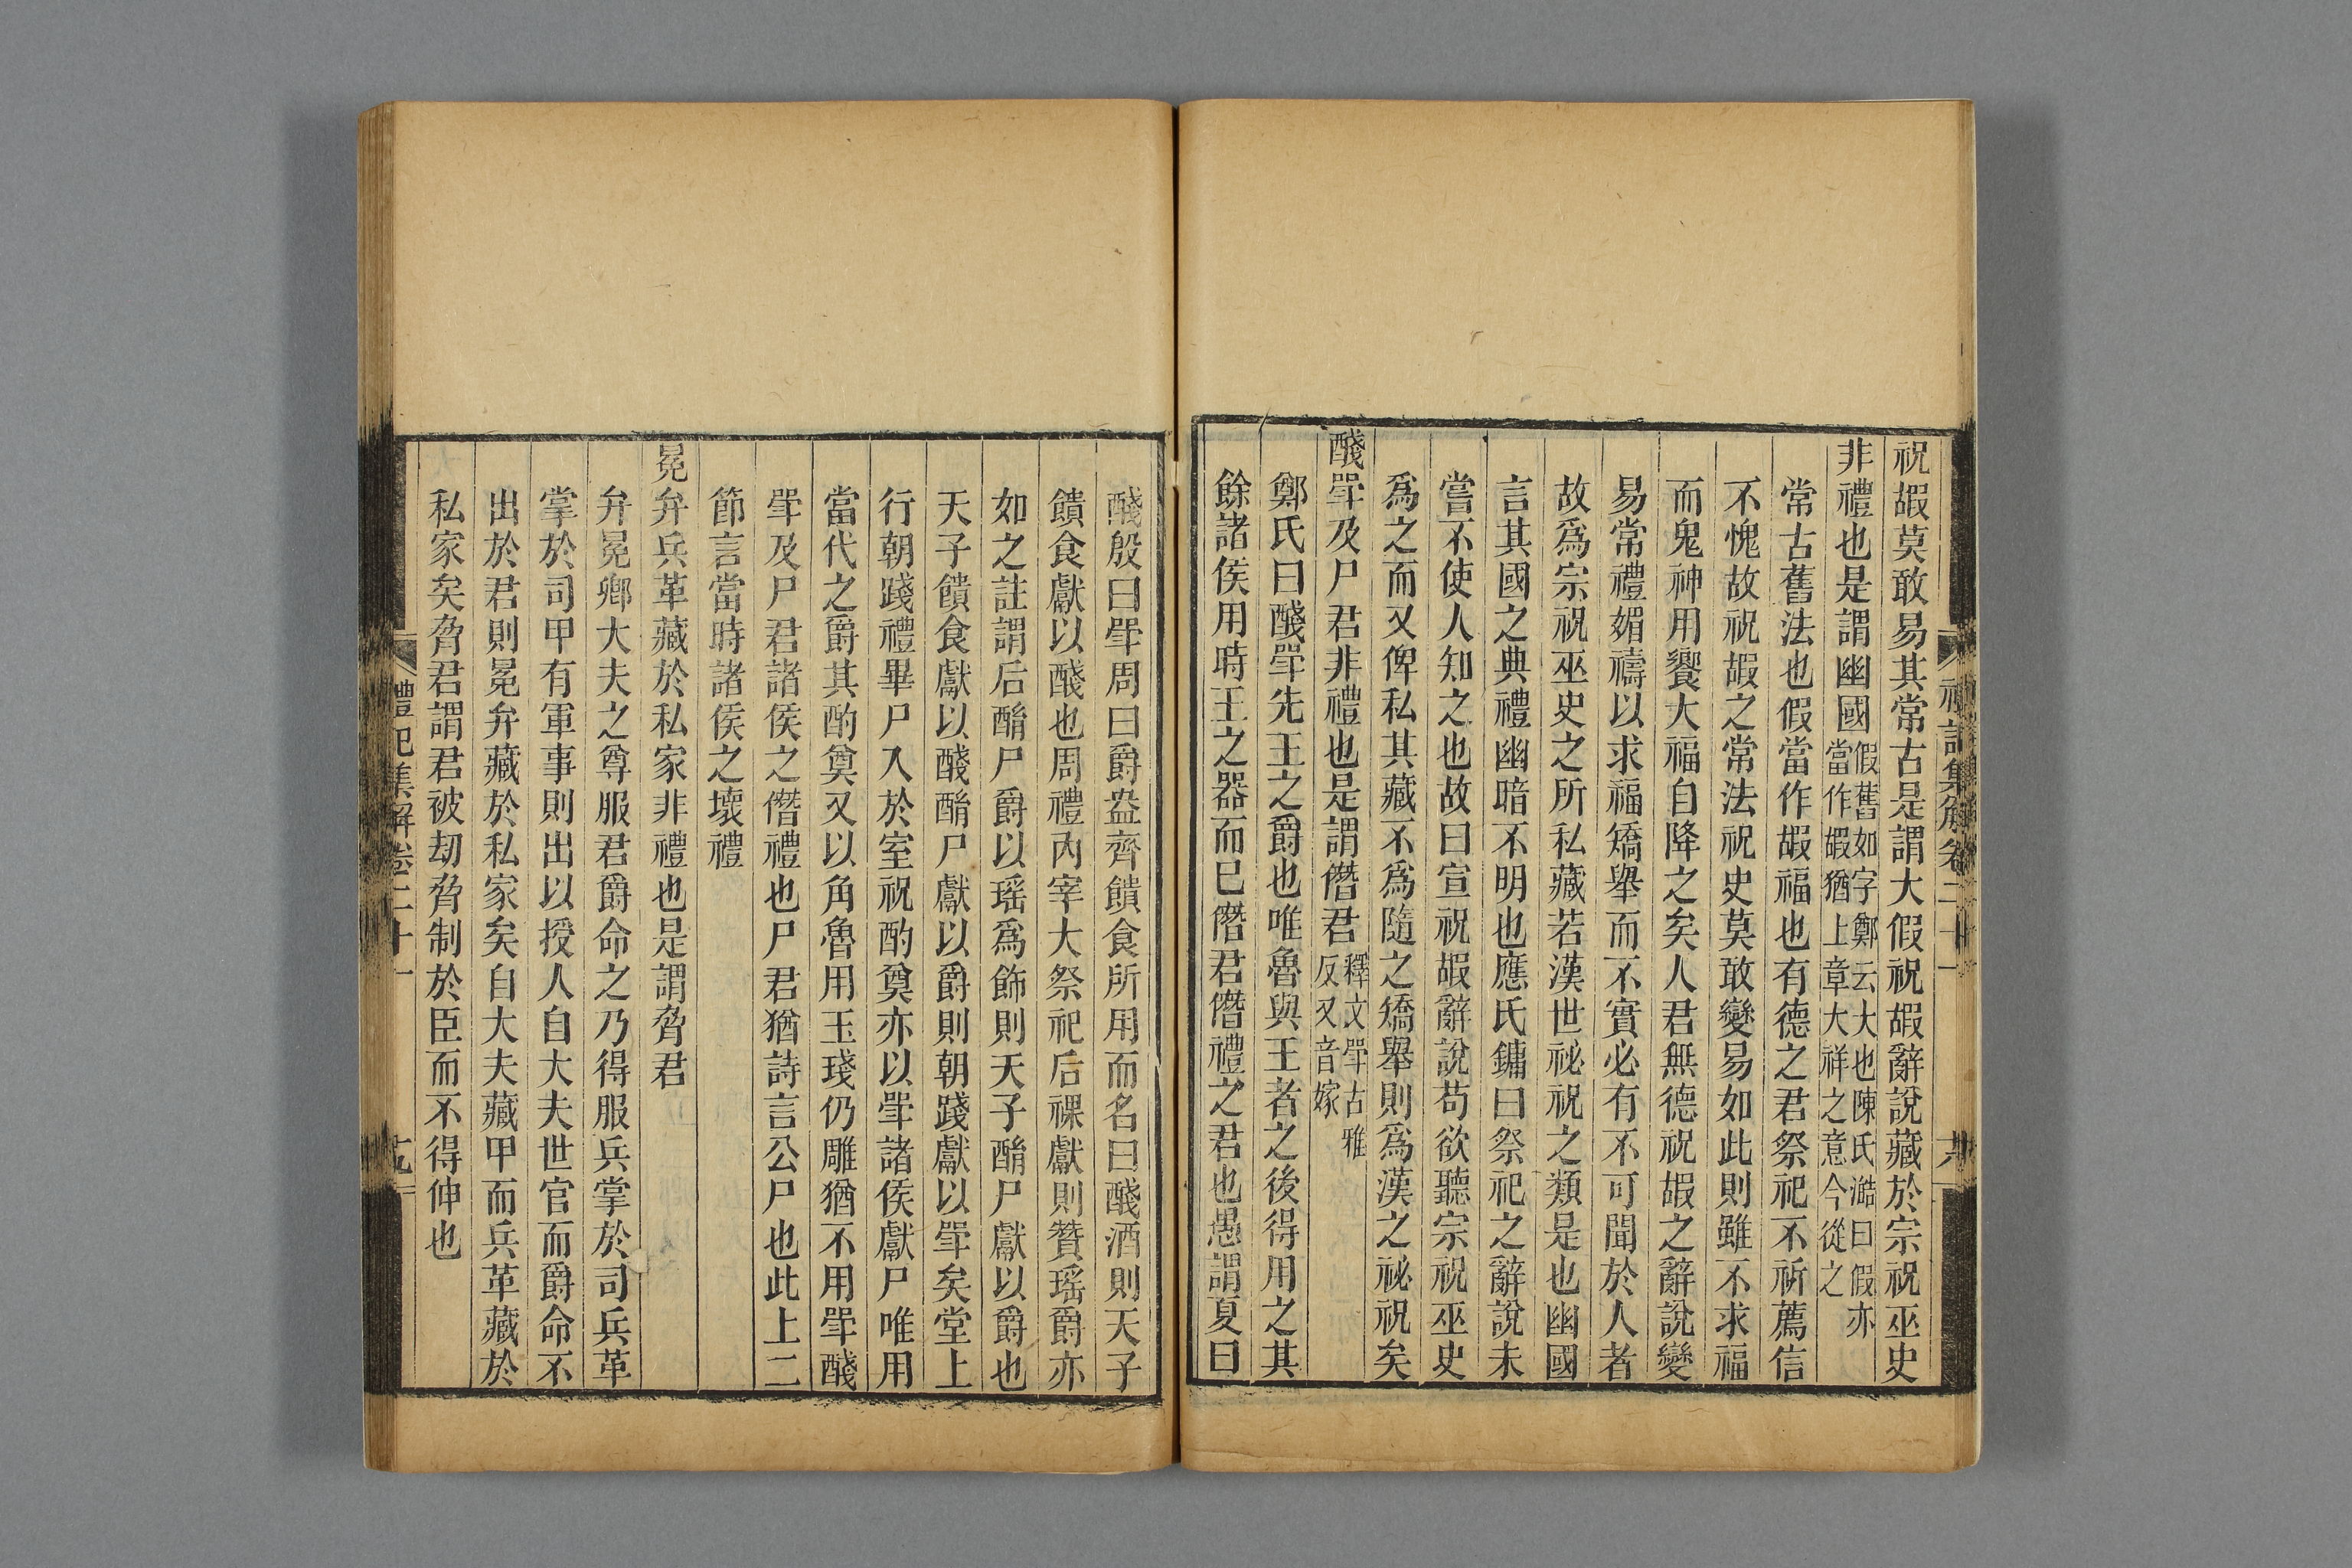 祝嘏莫敢易其常古是謂大假祝嘏辭說藏於宗祝巫史
非禮也是謂幽國
假舊如字鄭云大也陳氏澔曰假亦
當作嘏猶上章大祥之意今從之
常古舊法也假當作嘏福也有德之君祭祀不祈薦信
不愧故祝嘏之常法祝史莫敢變易如此則雖不求福
而鬼神用饗大福自降之矣人君無德祝嘏之辭說變
易常禮媚禱以求福矯舉而不實必有不可聞於人者
故爲宗祝巫史之所私藏若漢世祕祝之類是也幽國
言其國之典禮幽暗不明也應氏鏞曰祭祀之辭說未
嘗不使人知之也故曰宣祝嘏辭說苟欲聽宗祝巫史
爲之而又俾私其藏不爲隨之矯舉則爲漢之祕祝矣
醆斝及尸君非禮也是謂僭君
釋文斝古雅
反又音嫁
鄭氏曰醆斝先王之爵也唯魯與王者之後得用之其
餘諸侯用時王之器而巳僭君僭禮之君也愚謂夏曰
醆殷曰斝周曰爵盎齊饋食所用而名曰醆酒則天子
饋食獻以醆也周禮內宰大祭祀后祼獻則贊瑶爵亦
如之註謂后酳尸爵以瑶爲飾則天子酳尸獻以爵也
天子饋食獻以醆酳尸獻以爵則朝踐獻以斝矣堂上
行朝踐禮畢尸入於室祝酌奠亦以斝諸侯獻尸唯用
當代之爵其酌奠又以角魯用玉琖仍雕猶不用斝醆
斝及尸君諸侯之僭禮也尸君猶詩言公尸也此上二
節言當時諸侯之壞禮
冕弁兵革藏於私家非禮也是謂脅君
弁冕卿大夫之尊服君爵命之乃得服兵掌於司兵革
掌於司甲有軍事則出以授人自大夫世官而爵命不
出於君則冕弁藏於私家矣自大夫藏甲而兵革藏於
私家矣脅君謂君被劫脅制於臣而不得伸也
禮記集解卷二十一